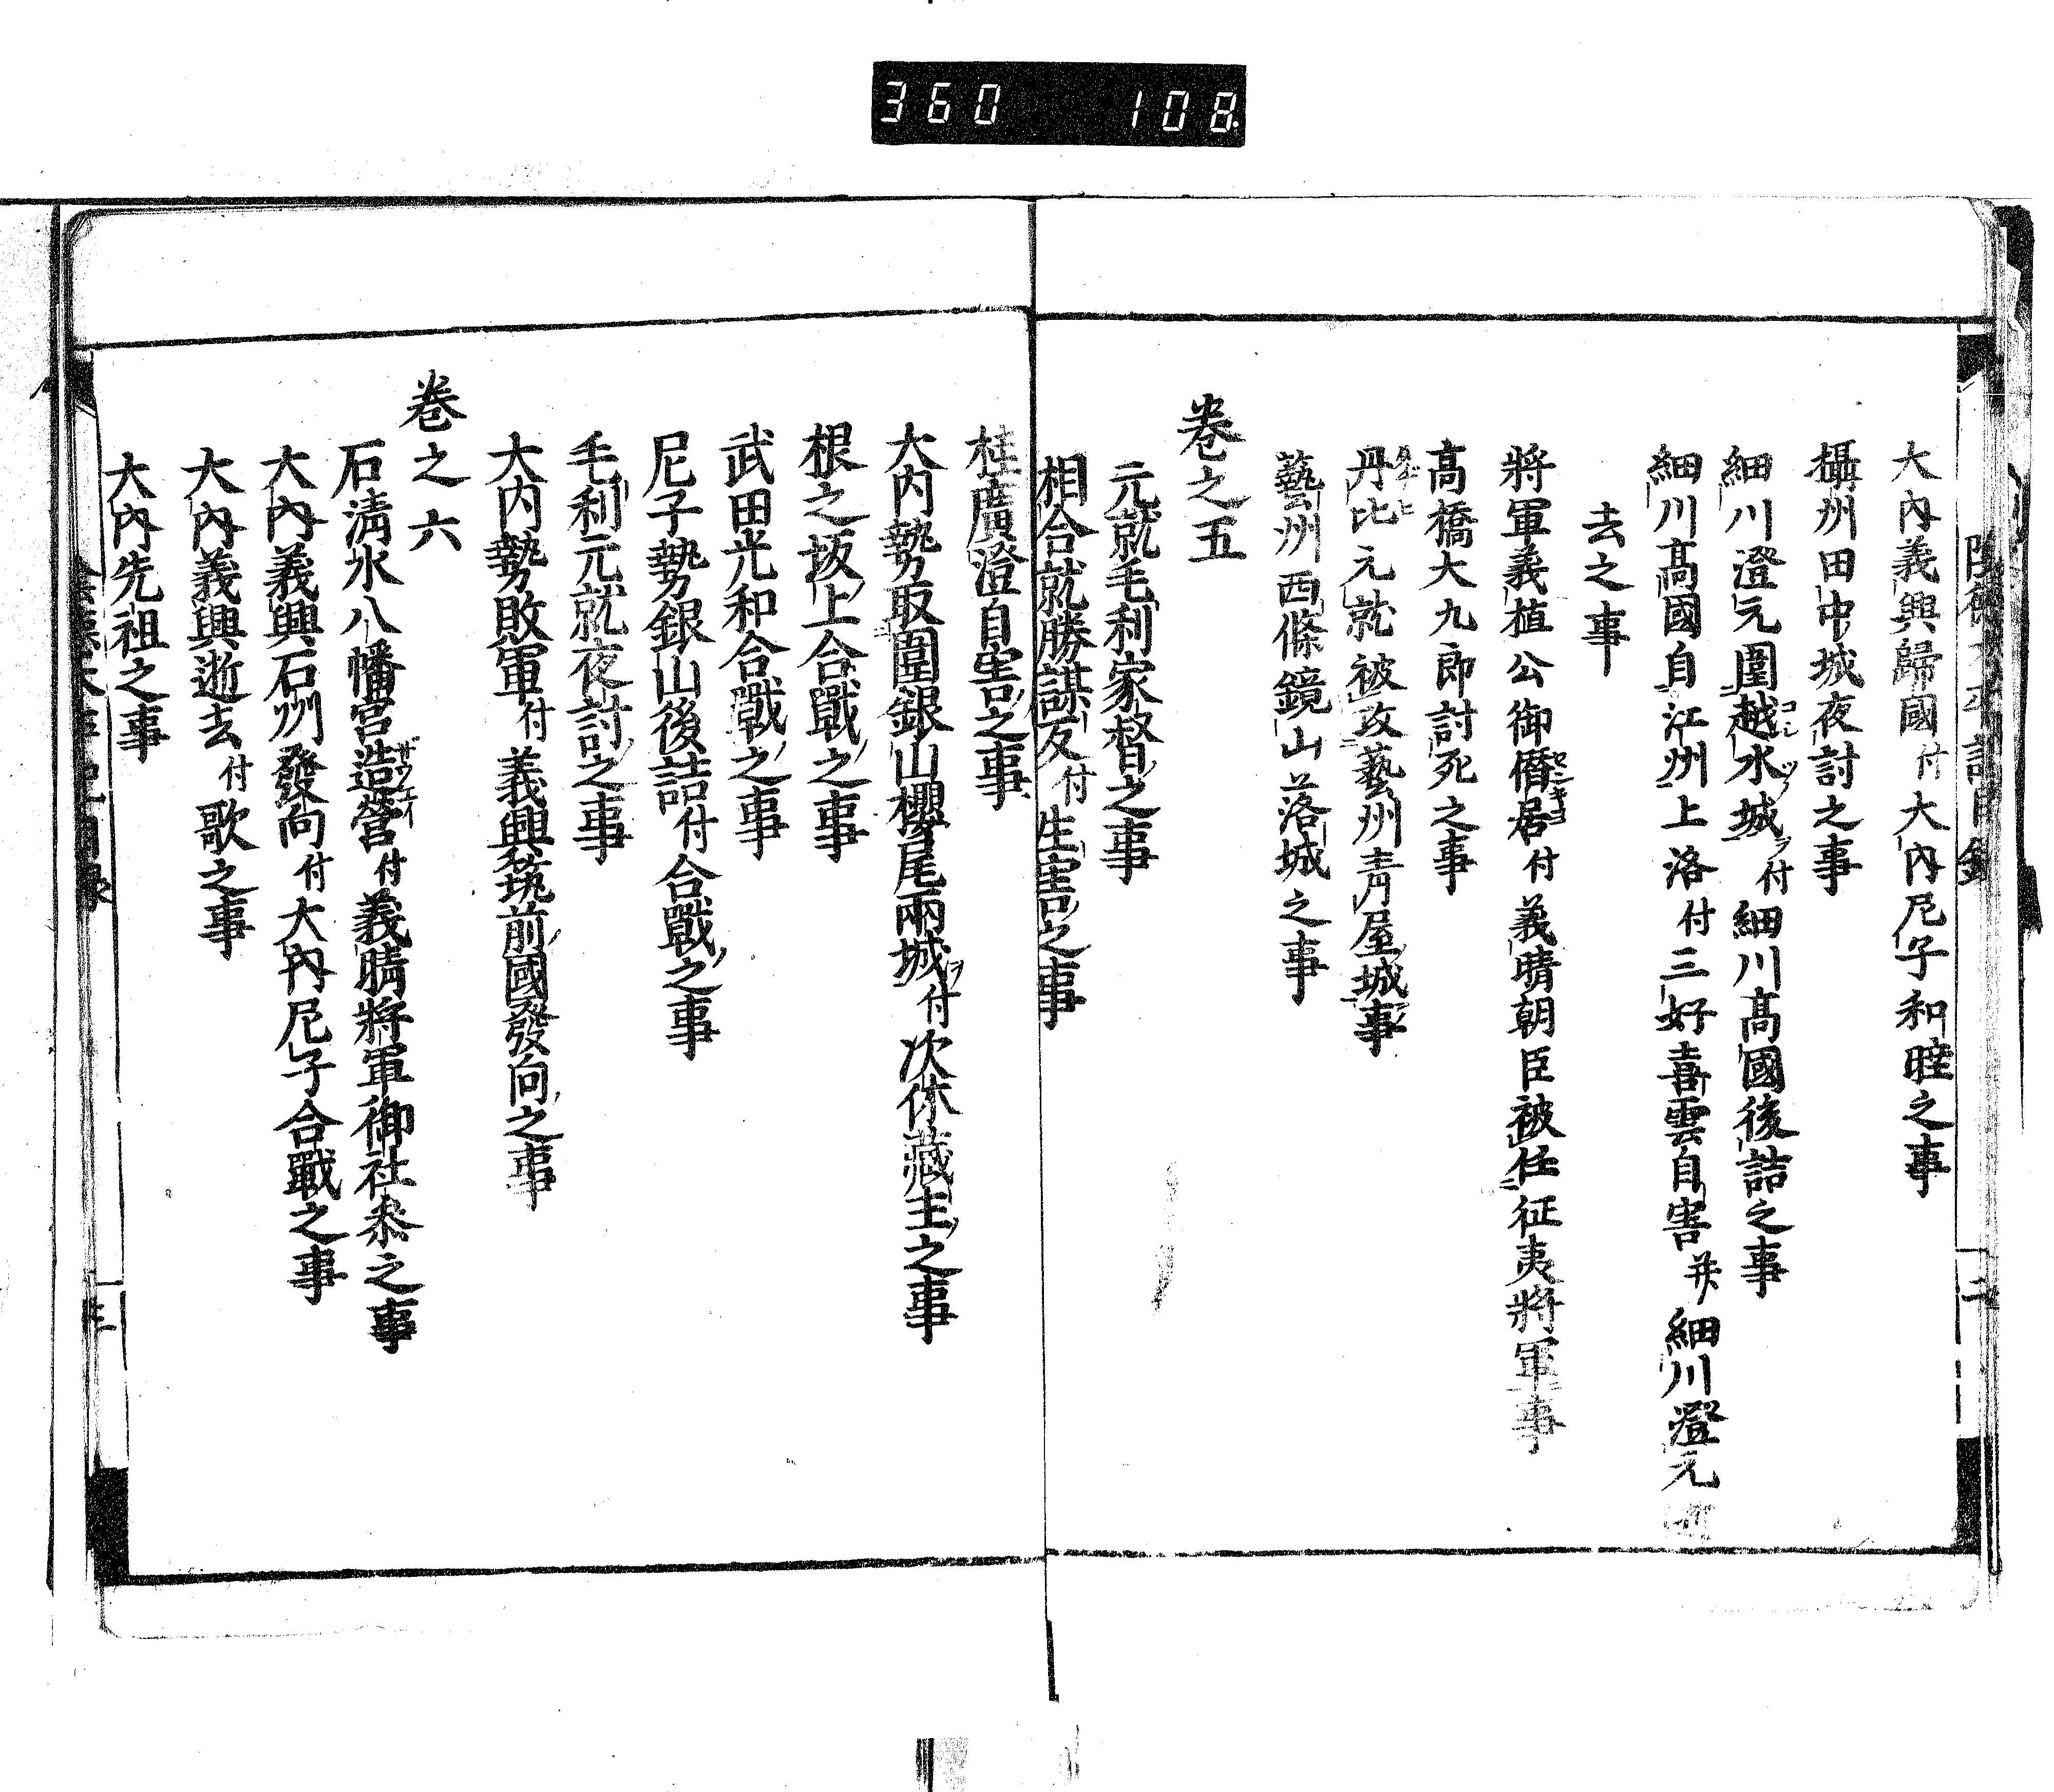 360 108
大內義興歸國付大內尼子和睦之事
攝州田中城夜討之事
細川澄元圍越水城ヲ付細川髙國後詰之事
細川髙國自江州上洛付三好喜雲自害并細川澄元
去之事
將軍義植公御僑居付義晴朝臣被任征夷將軍事
髙橋大九郎討死之事
丹比元就被攻藝州青屋城事
藝州西條鏡山落城之事
卷之五
元就毛利家督之事
相合就勝謀反付生害之事
桂廣澄自害之事
大内勢取圍銀山櫻尾兩城ヲ付次休藏主之事
根之坂上合戰之事
武田光和合戰之事
尼子勢銀山後詰付合戰之事
毛利元就夜討之事
大内勢敗軍付義興筑前國發向之事
卷之六
石清水八幡宮造營付義晴將軍御社參之事
大內義興石州發向付大內尼子合戰之事
大內義興逝去付歌之事
大內先祖之事